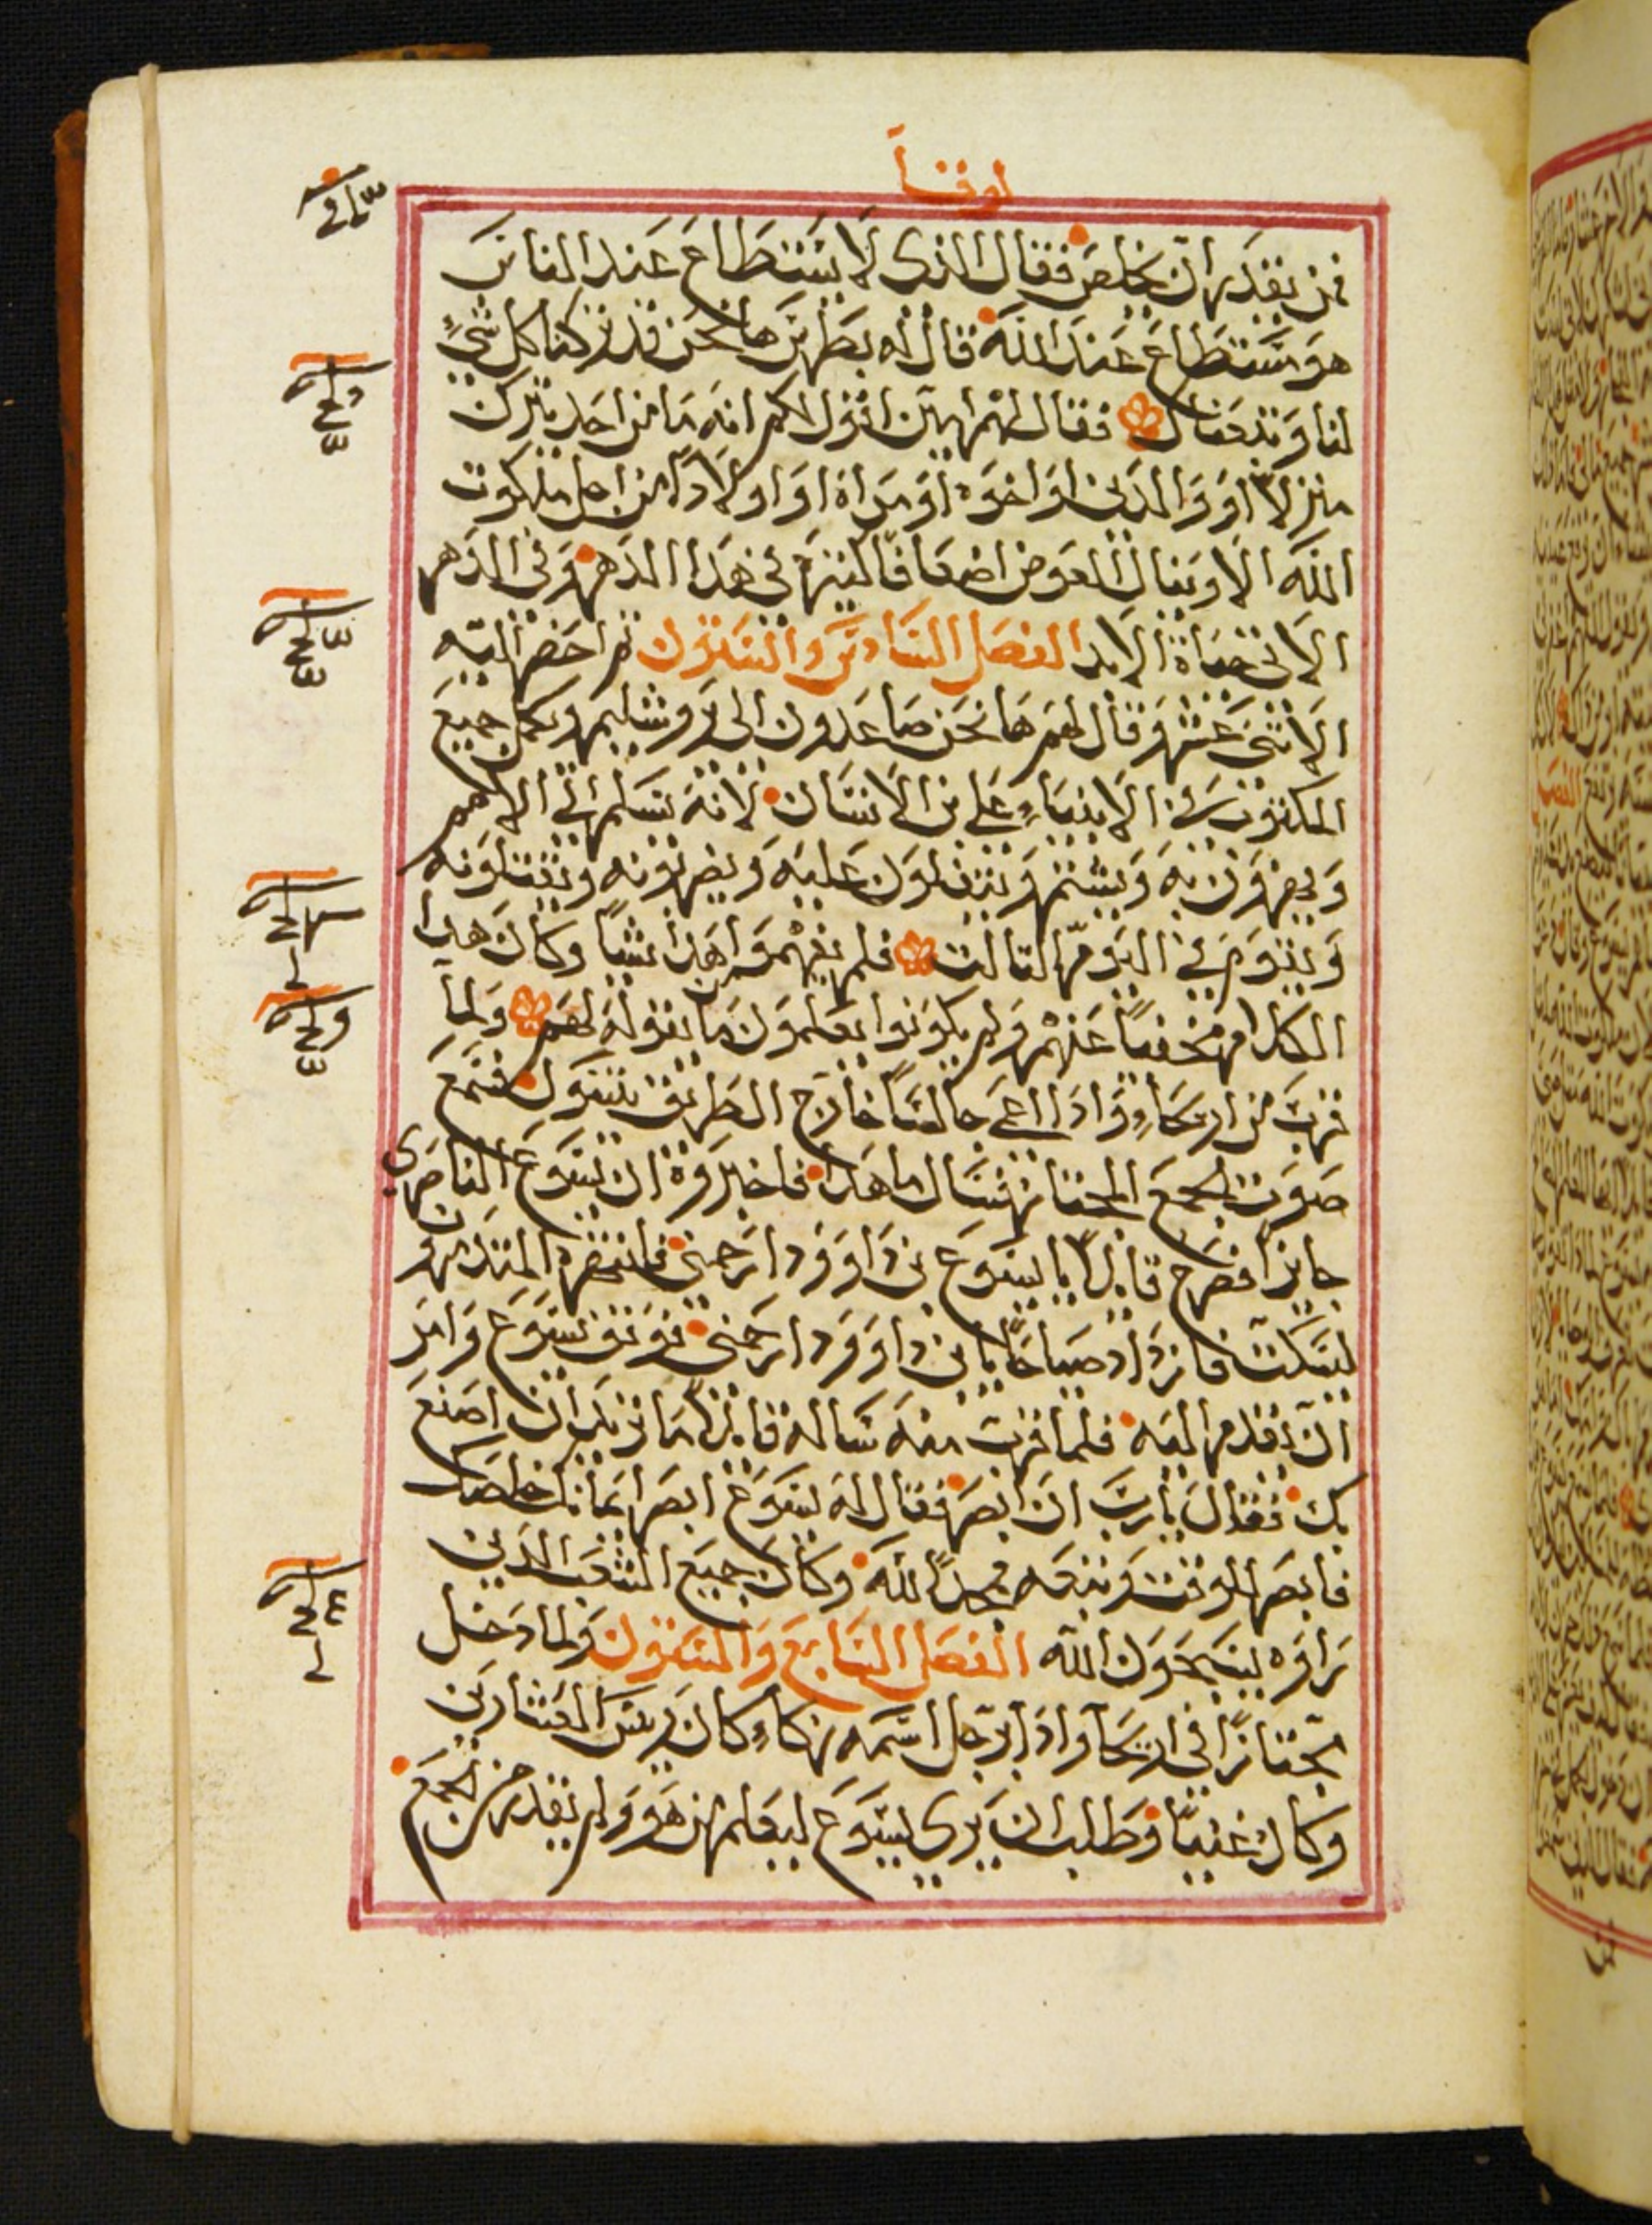 لوقا
فمن يقدر ان يخلص فقال الذى لا يستطاع عند الناس
هو مستطاع عند الله قال له بطرس ها نحن قد تركنا كل شيءٍ
لنا وتبعناك فقال لهم امين اقول لكم انه ما من احد يترك
منزلاً او والدين او اخوه او مراة او اولاداً من اجل ملكوت
الله الا وينال العوض اضعافا كثيرة في هذا الدهر وفى الدهر
الاتى حياة الابد الفصل السادس والستون ثم احضر اليه
الاثنى عشر وقال لهم ها نحن صاعدون الى يروشليم ويكمل جميع
المكتوب في الانبياءِ على بن الانسان لانه يسلم الى الامم
ويهزون به ويشتم ويتفلون عليه ويضربونه ويقتلونه
ويقوم في اليوم الثالث فلم يفهموا من هذا شياً وكان هذا
الكلام مخفياً عنهم ولم يكونوا يعلمون ما يقوله لهم ولما
قرب من اريحاءِ واذا اعمى جالساً خارج الطريق يتسول فسمع
صوت الجمع المجتاز فسال ما هذا فاخبروة ان يسوع الناصري
جايزاً فصرخ قايلاً يا يسوع بن داوود ارحمني فانتهره المتقدمون
ليسكت فازداد صياحاً يا بن داوود ارحمني فوقف يسوع وامر
ان يقدم اليه فلما قرب منه ساله قايلاً ما تريد ان اصنع
بك فقال يارب ان ابصر فقال له يسوع ابصر ايمانك خلصك
فابصر للوقت وتبعه ممجداً لله وكان جميع الشعب الذين
راوه يسبحون الله الفصل السابع والستون ولما دخل
مجتازاً في اريحا واذا برجل اسمه زكاءِ كان ريس العشارين
وكان غنياً وطلب ان يرى يسوع ليعلم من هو ولم يقدر من الجمع